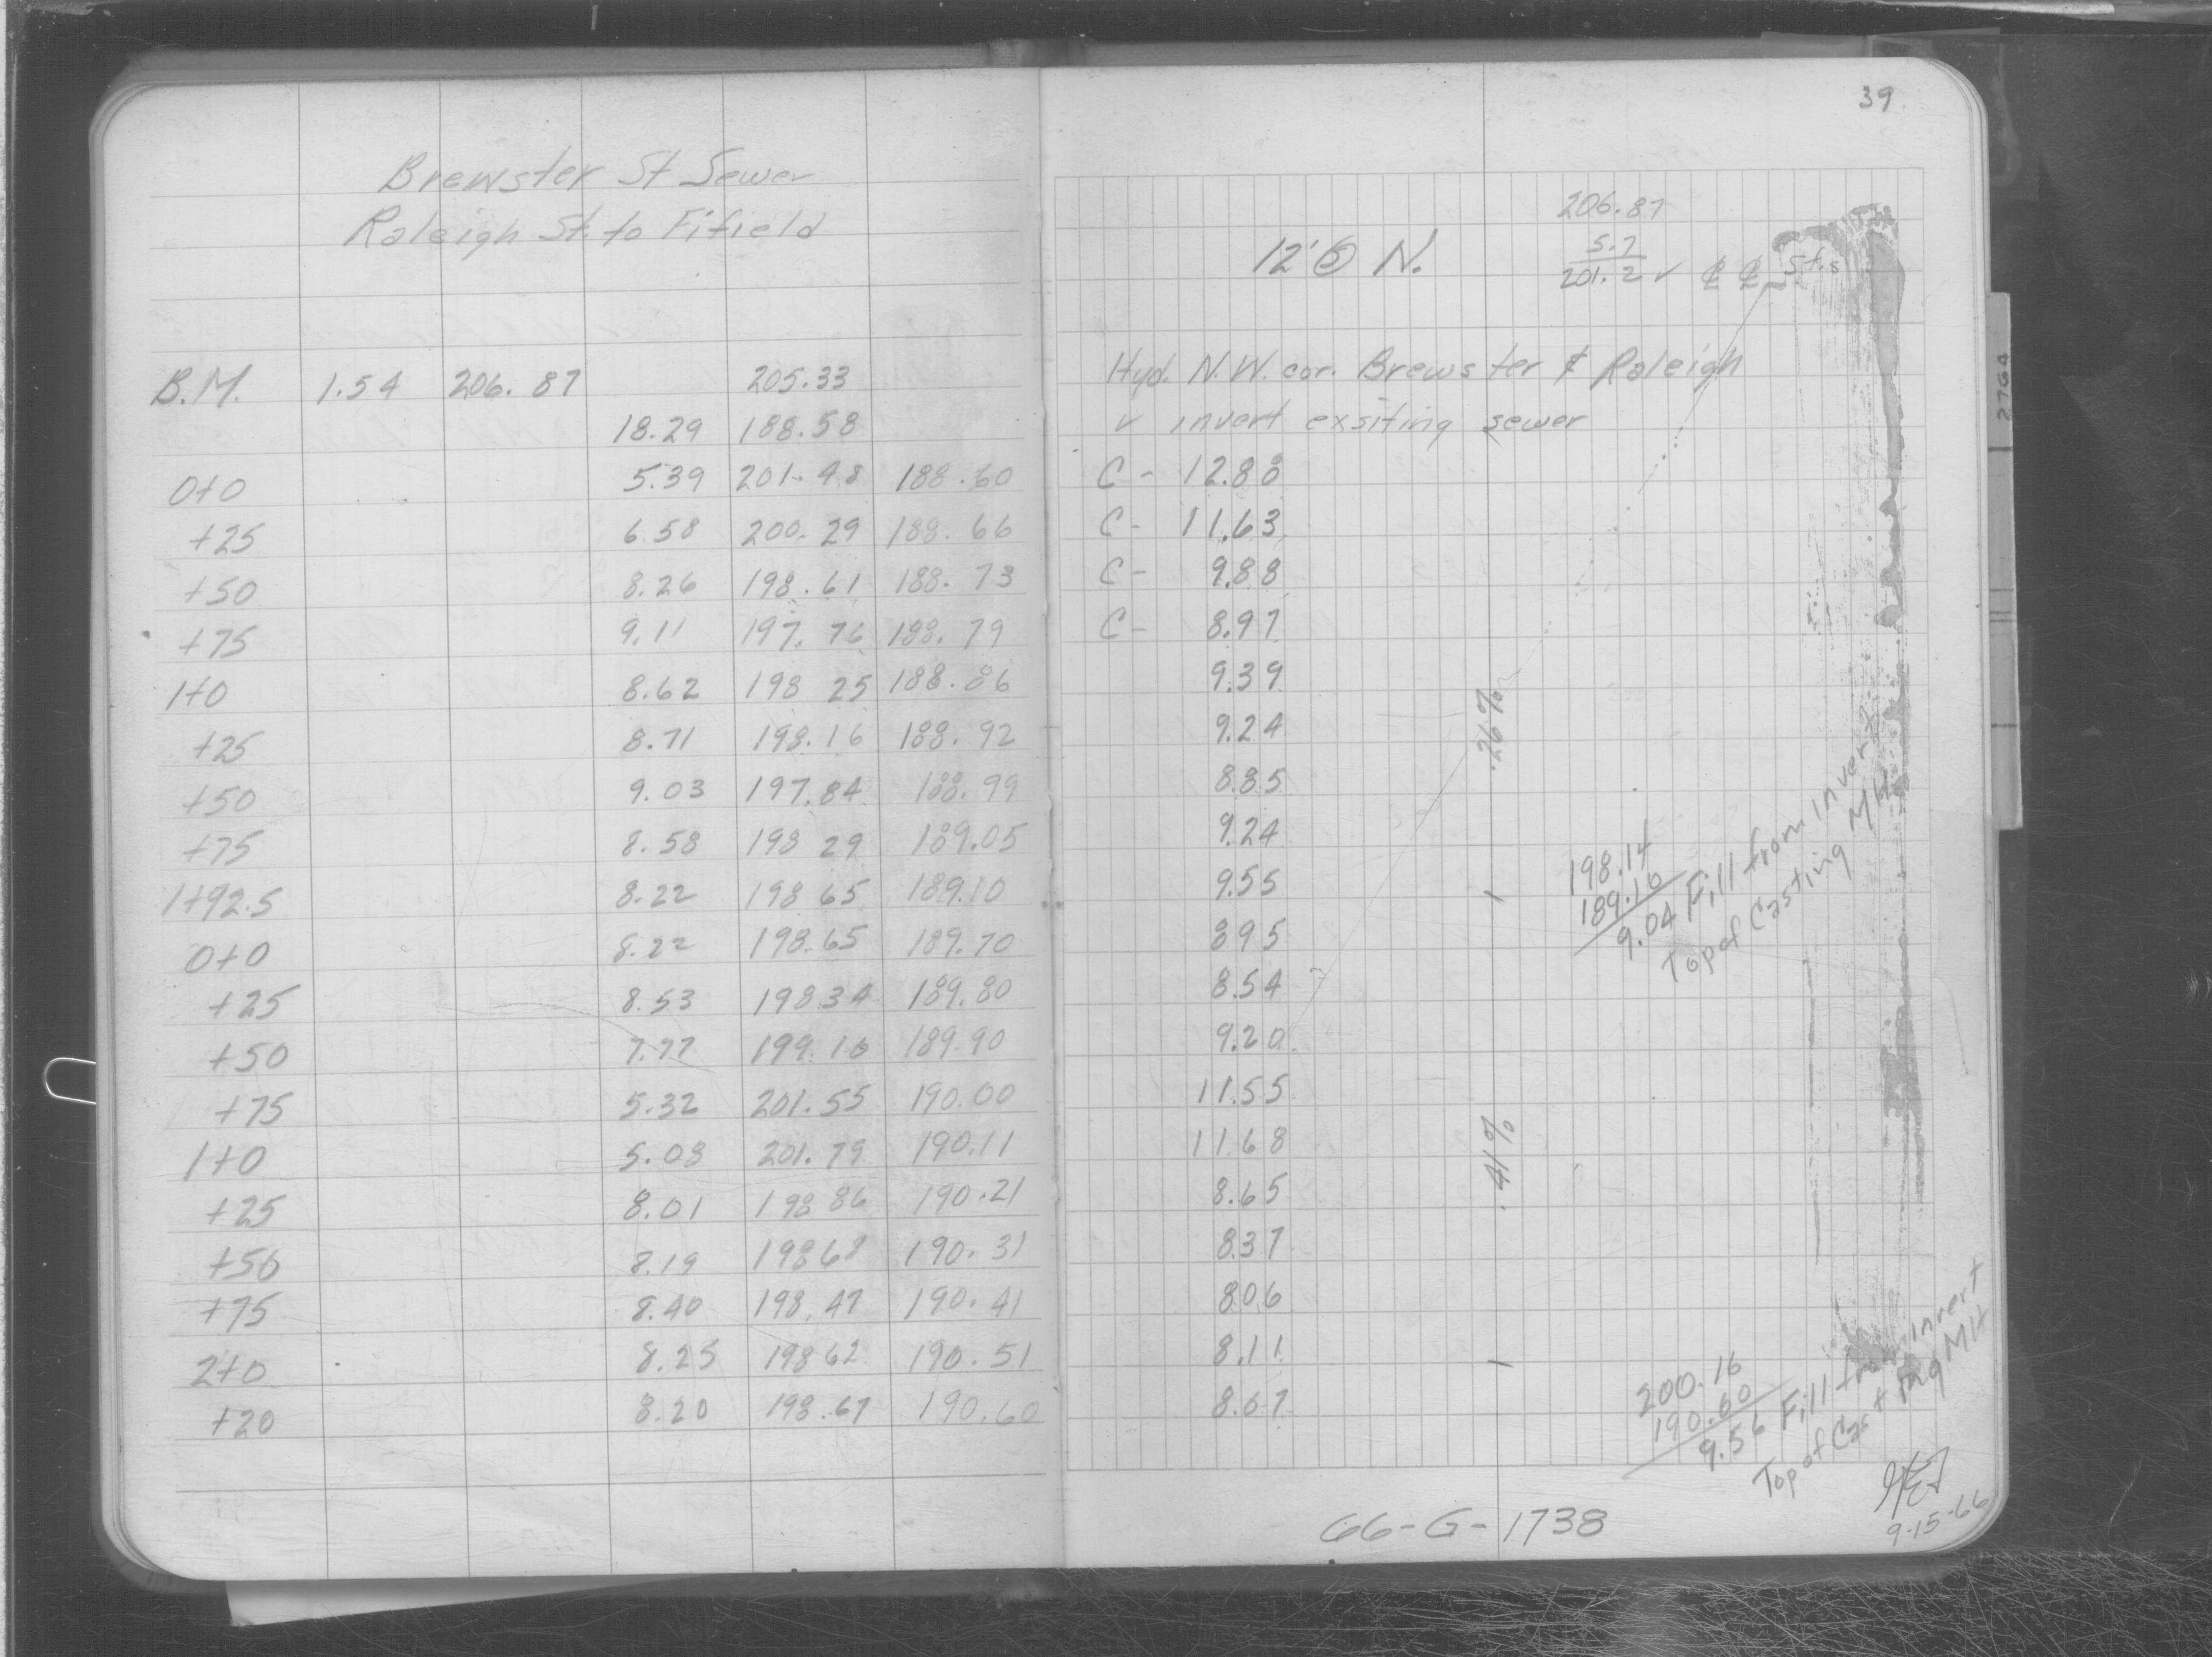 39
Brewster St Sewer
Raleigh St. to Fifield
12' Ⓢ N.
206.87
5.7
201.2 ✓ ℄ ℄ St.s
B.M. 1.54 206.87 205.33 Hyd. N.W. cor. Brewster & Raleigh
18.29 188.58 ✓ invert exsiting sewer
0+0 5.39 201.48 188.60 C- 12.88
+25 6.58 200.29 188.66 C- 11.63
+50 8.26 198.61 188.73 C- 9.88
+75 9.11 197.76 188.79 C- 8.97
1+0 8.62 198 25 188.86 9.39
+25 8.71 198.16 188.92 9.24
+50 9.03 197.84 188.99 8.85
+75 8.58 198 29 189.05 9.24
1+92.5 8.22 198 65 189.10 9.55
0+0 8.22 198.65 189.70 895
+25 8.53 198.34 189.80 8.54
+50 7.77 199.10 189.90 9.20
+75 5.32 201.55 190.00 11.55
1+0 5.08 201.79 190.11 11.68
+25 8.01 198 86 190.21 8.65
+50 8.19 198 68 190.31 8.37
+75 8.40 198.47 190.41 806
2+0 8.25 198 62 190.51 8.11
+20 8.20 198.67 190.60 8.07
.26%
.41%
198.14
189.10
9.04 Fill from invert
Top of Casting MH
200.16
190.60
9.56 Fill from invert
Top of Casting MH
9-15-66
66-G-1738
2764